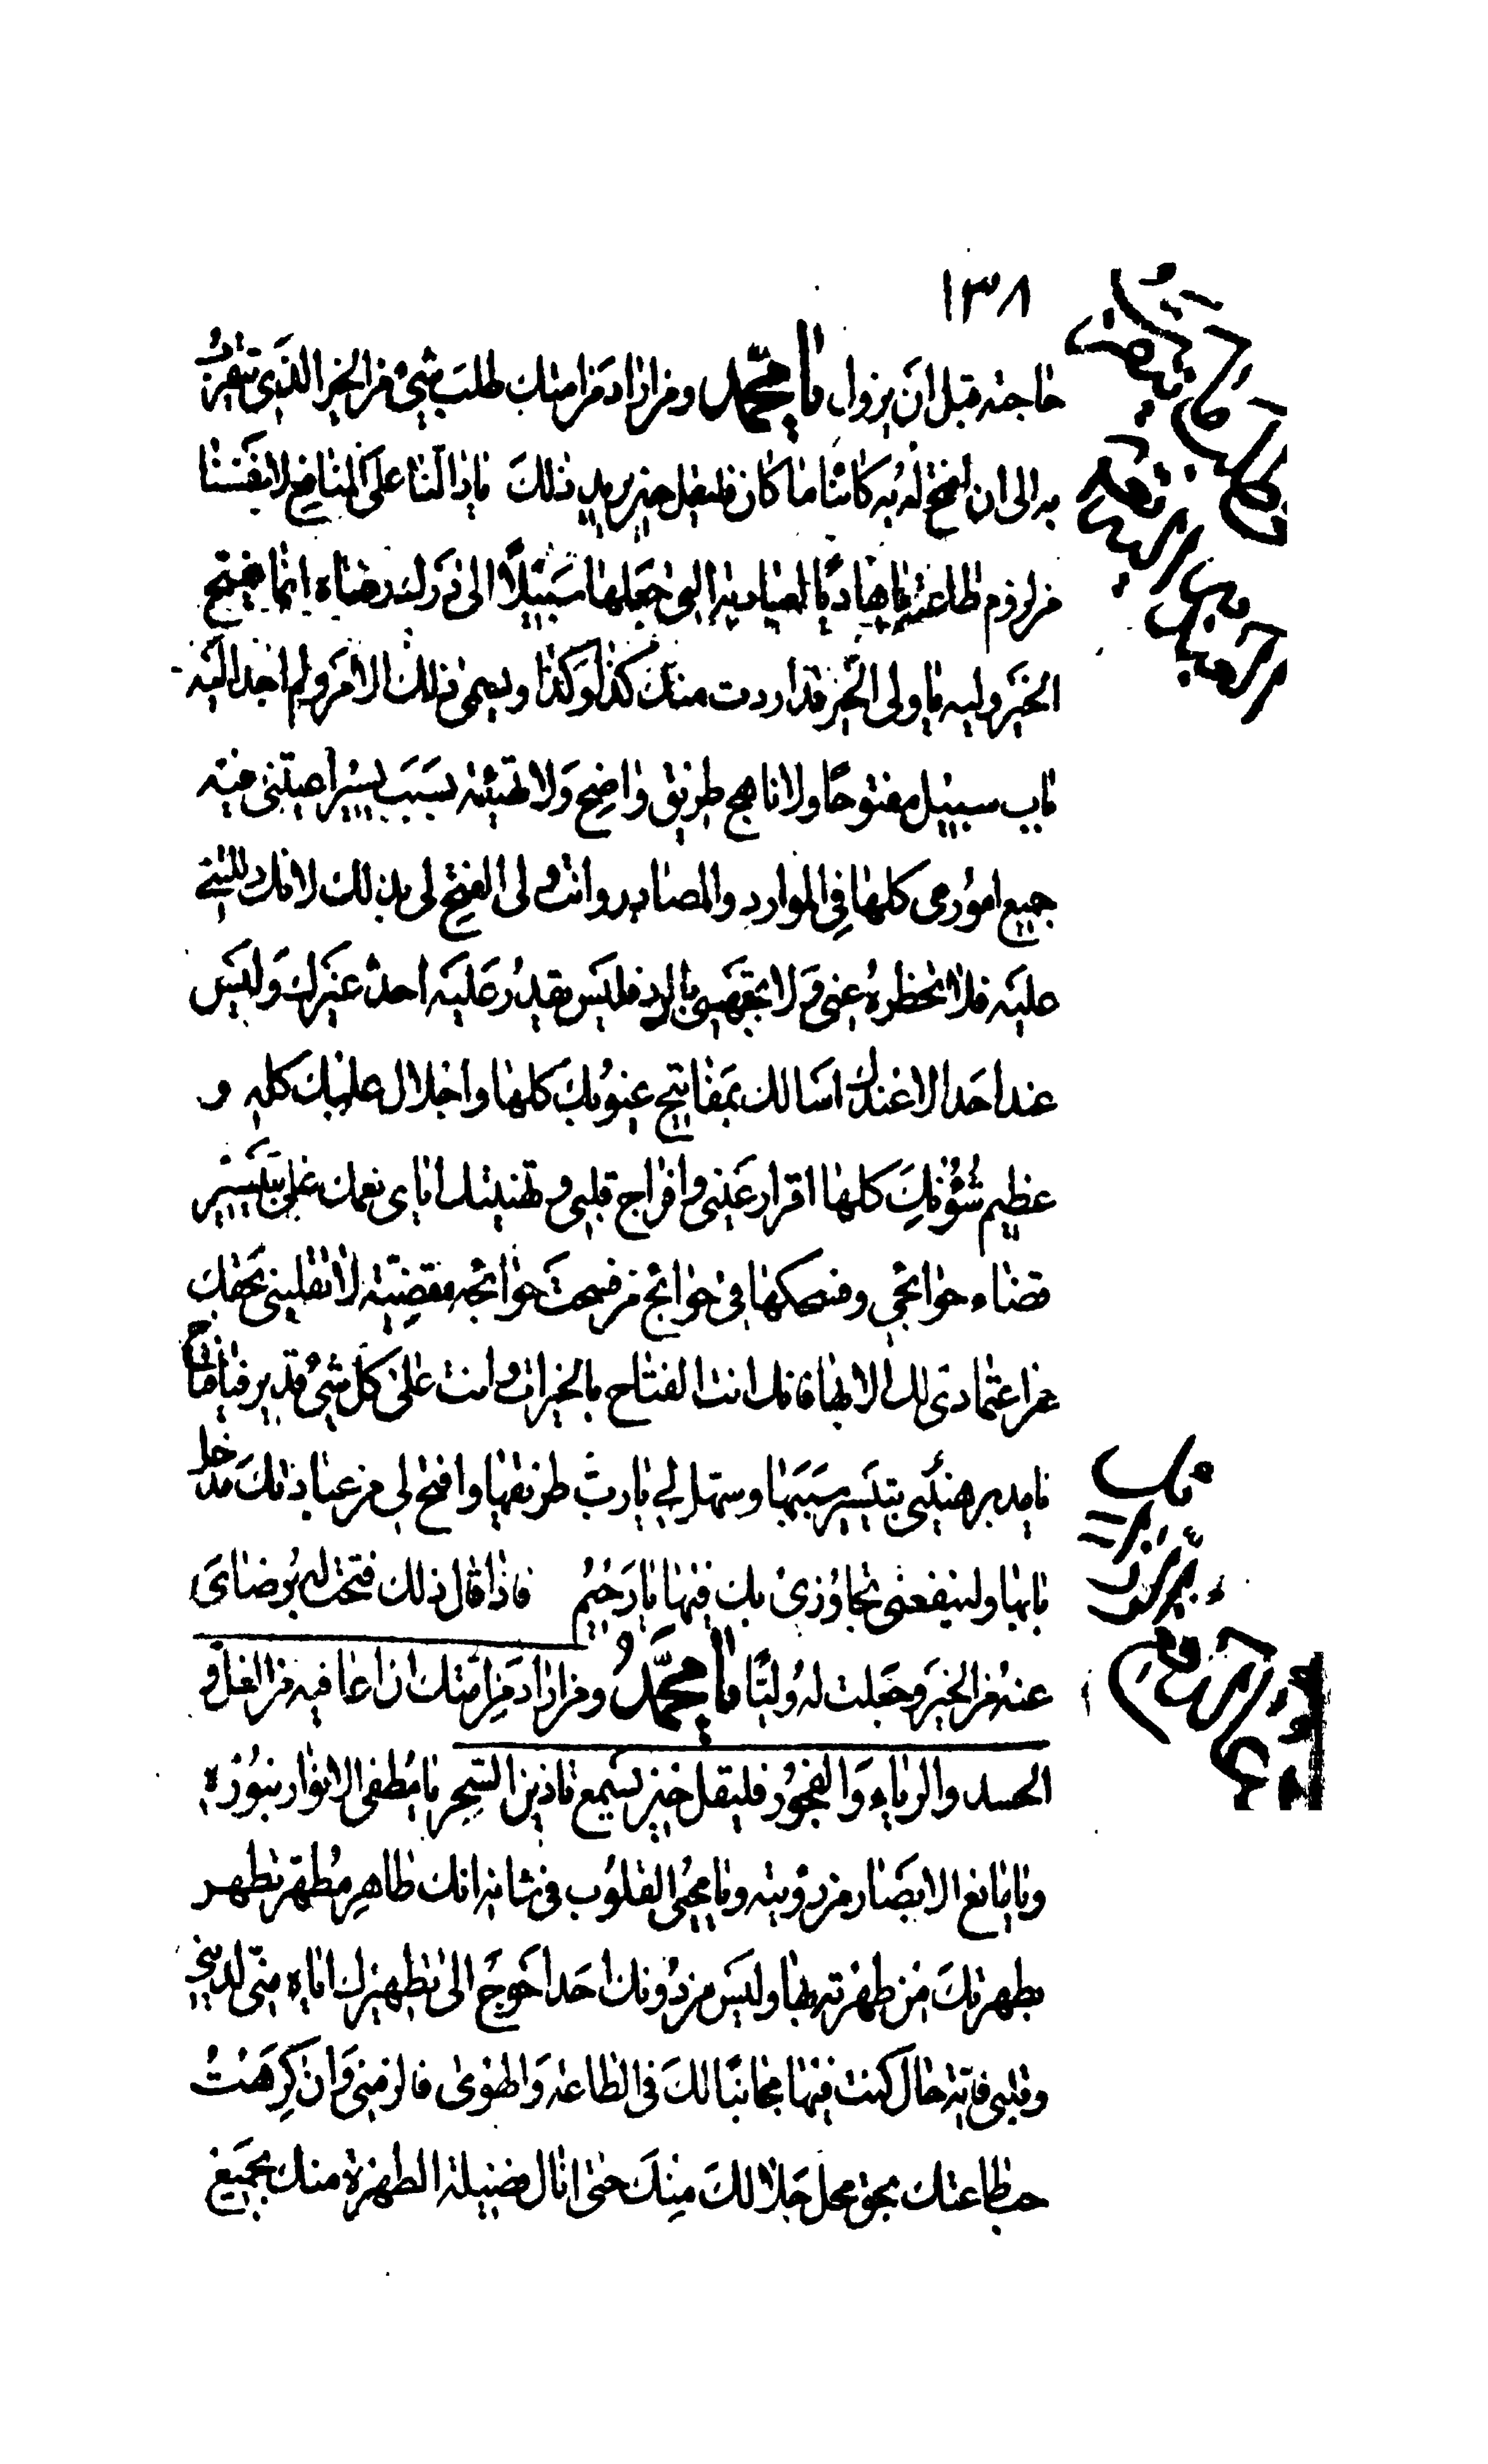 ١٣٨
حاجته قبل ان يزول يا محمد ومن اراد من امتك طلب شيء من الخير الذي يتقرب
به الى ان افتح له به كائنا ما كان فليقل حين يريد ذلك يا دالنا على المنافع لانفسنا
من لزوم طاعته يا هاديا لعبادته التي جعلها سبيلا الى درك رضاه انما يفتح
الخير وليه يا ولي الخير قد اردت منك كذا وكذا ويسمي ذلك الامر ولم اجد اليه
باب سبيل مفتوحا ولا ناهج طريق واضح ولا تهيئة سبب يسير اعيتني فيه
جميع اموري كلها في الموارد والمصادر وانت ولي الفتح لي بذلك لانك دللتني
عليه فلا تحظره عني ولا تجبهني بالرد فليس يقدر عليه احد غيرك وليس
عند احد الا عندك اسالك بمفاتيح غيوبك كلها واجلال علمك كله و
عظيم شؤنك كلها اقرار عيني وافراج قلبي وتهنيتك اياي نعمك علي بتيسير
قضاء حوائجي ونسكها في حوائج من نسكت حوائجه مقضية لا تقلبني بحقك
عن اعتمادي لك الا بها فانك انت الفتاح بالخيرات وانت على كل شيء قدير فيا فتاح
يا مدبر هيئ لي تيسير سببها وسهل لي يا رب طريقها وافتح لي من عبادتك مدخل
بابها ولينفعني تجاوزي بك فيها يا رحيم فاذا قال ذلك فتحت له برضاي
عنه من الخير وجعلت له وليا يا محمد ومن اراد من امتك ان اعافيه من الغل و
الحسد والرياء والفجور فليقل حين يسمع تاذين السحر يا مطفي الانوار بنوره
ويا مانع الابصار من رؤيته ويا محيي القلوب في شانه انك طاهر مطهر تطهر
بطهرتك من طهرته بها وليس من دونك احد احوج الى تطهيرك اياه مني لديني
وقلبي فاية حال كنت فيها مجانبا لك في الطاعة والهوى فالزمني وان كرهت
حب طاعتك بحق محل جلالك منك حتى انال فضيلة الطهرة منك بجميع